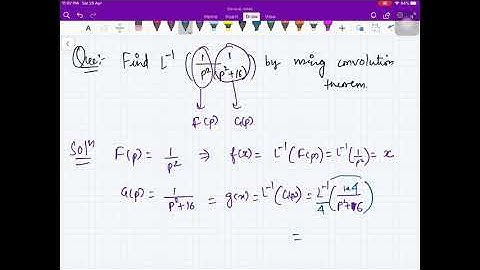 11:07 PM Sat 25 Apr
84%
Draw
Ques:- Find L⁻¹ (1/p² · 1/(p²+16)) by using convolution theorem.
F(p) G(p)
Solⁿ F(p) = 1/p² ⇒ f(x) = L⁻¹(F(p)) = L⁻¹(1/p²) = x
G(p) = 1/(p²+16) = g(x) = L⁻¹(G(p)) = L⁻¹/4 (1×4/(p²+16))
=